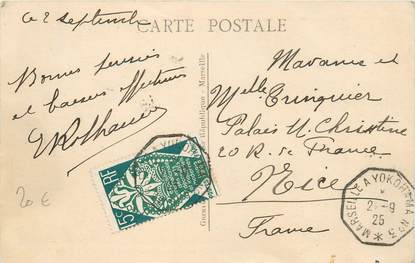 ce 2 septembre
CARTE POSTALE
Bonnes pensées
et baisers affectueux
République - Marseille
Madame et
Melle Tringuier
Palais M. Christine
20 R. de France
Nice
France
20 €
RF
MARSEILLE A YOKOHAMA N°3
2 -9
25